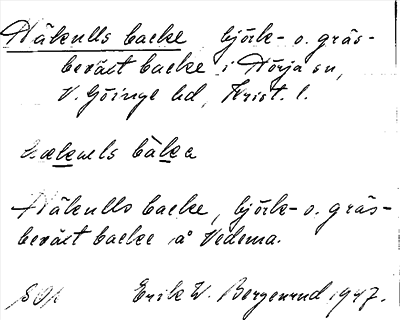 Näkulls backe björk- o. gräs-
beväxt backe i Nörja sn,
V. Göinge hd, Krist. l.
bàka
Näkulls backe, björk- o. gräs-
beväxt backe å Vedema.
Erik W. Bergenrud 1947.